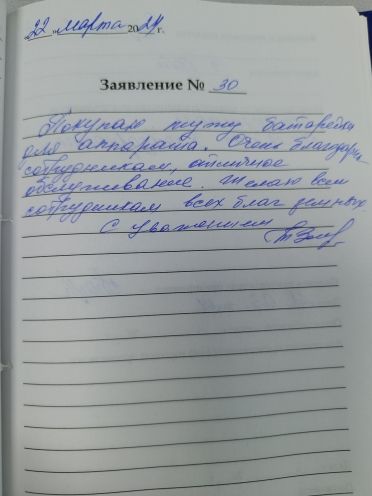 "22" марта 2024г.
Заявление № 30
Покупаю мужу батарейки
для аппарата. Очень благодарна
сотрудникам, отличное
обслуживание. Желаю всем
сотрудникам всех благ земных
С уважением